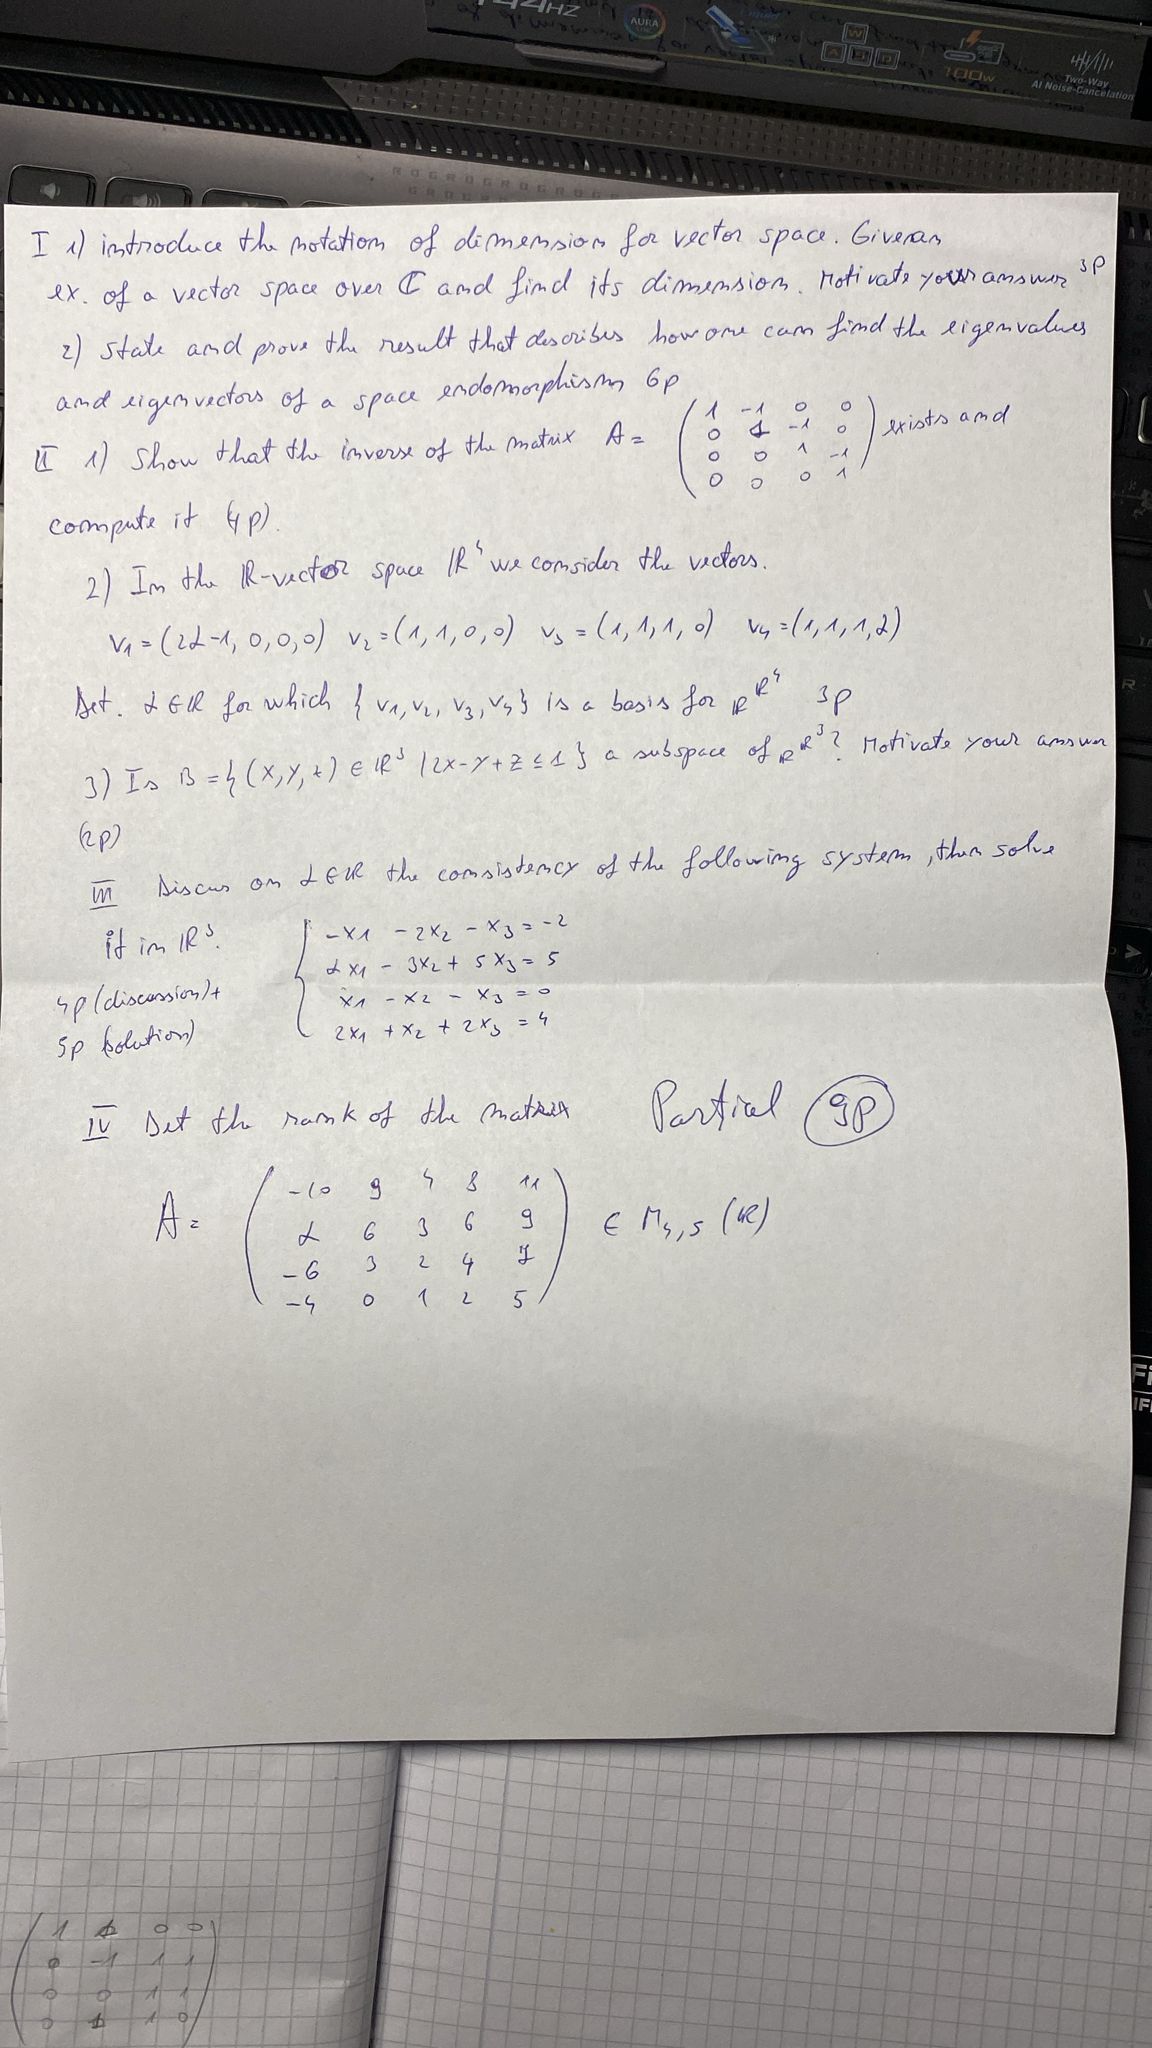 144HZ
AURA
W
A D D
100W
Two-Way
AI Noise-Cancelation
I 1) introduce the notation of dimension for vector space. Give an
ex. of a vector space over ℂ and find its dimension. Motivate your answer 3p
2) State and prove the result that describes how one can find the eigenvalues
and eigenvectors of a space endomorphism 6p
II 1) Show that the inverse of the matrix A = ( 1 -1 0 0 ) exists and
0 1 -1 0
0 0 1 -1
0 0 0 1
compute it (4p).
2) In the ℝ-vector space ℝ⁴ we consider the vectors.
v1 = (2α-1, 0, 0, 0) v2 = (1, 1, 0, 0) v3 = (1, 1, 1, 0) v4 = (1, 1, 1, 2)
Det. α ∈ ℝ for which { v1, v2, v3, v4 } is a basis for ℝℝ⁴ 3p
3) Is B = { (x, y, z) ∈ ℝ³ | 2x - y + z ≤ 1 } a subspace of ℝℝ³? Motivate your answer
(2p)
III Discus on α ∈ ℝ the consistency of the following system, then solve
it in ℝ³.
4p (discussion) +
5p (solution)
-x1 - 2x2 - x3 = -2
αx1 - 3x2 + 5x3 = 5
x1 - x2 - x3 = 0
2x1 + x2 + 2x3 = 4
IV Det the rank of the matrix Partial 9p
A = ( -10 9 4 8 11 )
α 6 3 6 9 ∈ M4,5 (ℝ)
-6 3 2 4 7
-4 0 1 2 5
R
Fi
1 0 0
-1 1 1
0 0 1 1
0 1 0